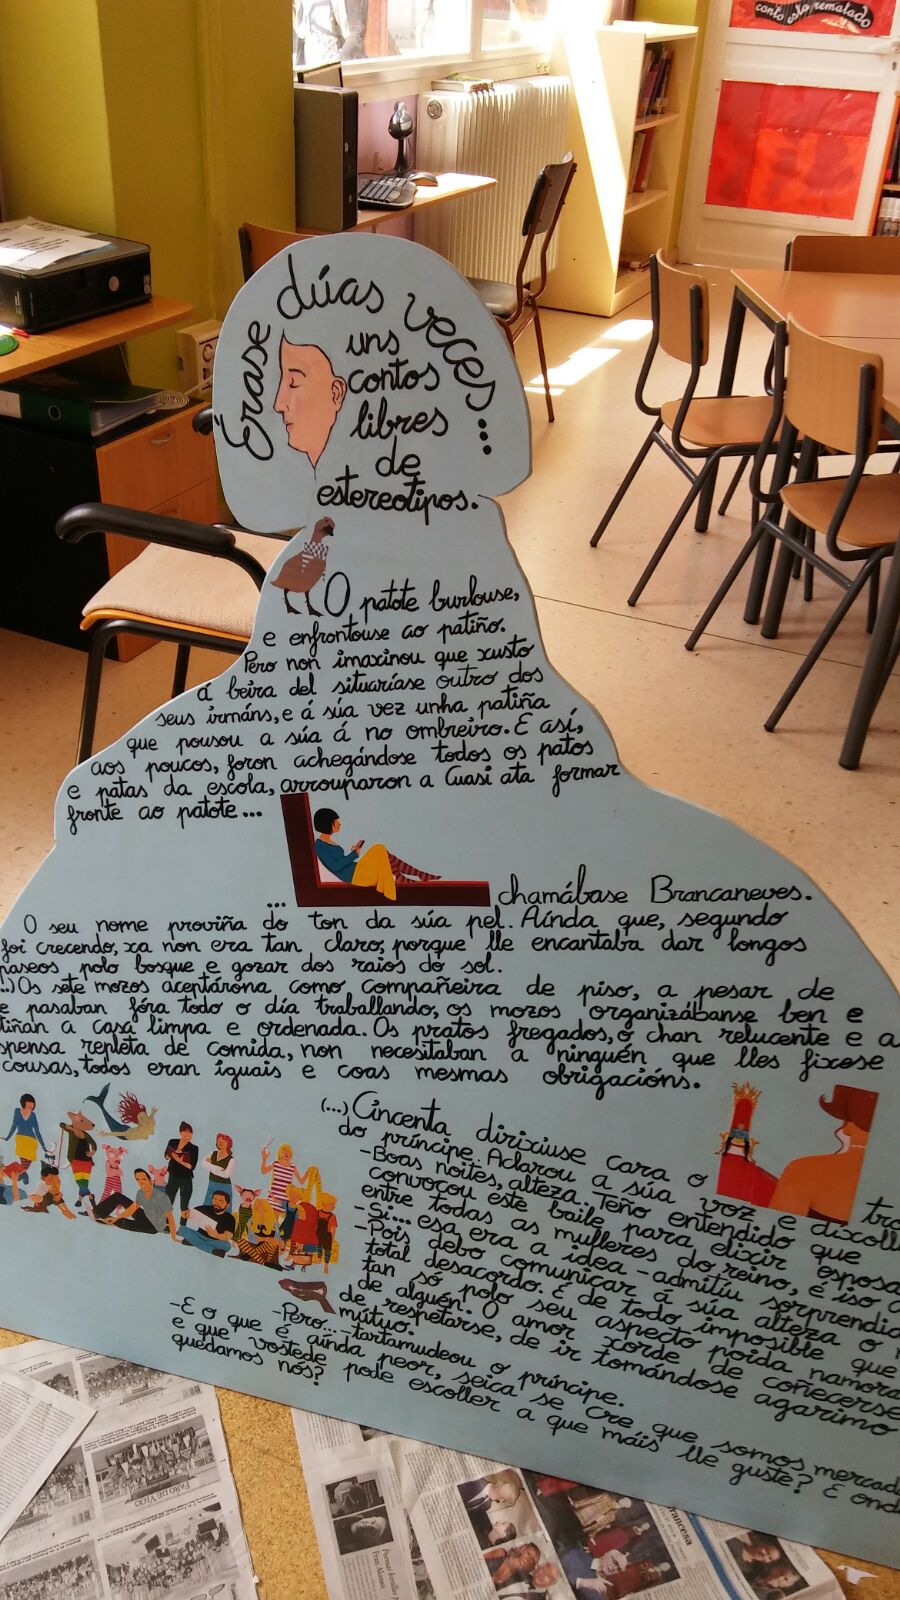 conto está rematado
Érase dúas veces...
uns
contos
libres
de
estereotipos.
O patote burlouse,
e enfrontouse ao patiño.
Pero non imaxinou que xusto
á beira del situaríase outro dos
seus irmáns, e á súa vez unha patiña
que pousou a súa á no ombreiro. E así,
aos poucos, foron achegándose todos os patos
e patas da escola, arrouparon a Cuasi ata formar
fronte ao patote...
... chamábase Brancaneves.
O seu nome proviña do ton da súa pel. Aínda que, segundo
foi crecendo, xa non era tan claro, porque lle encantaba dar longos
paseos polo bosque e gozar dos raios do sol.
..) Os sete mozos aceptárona como compañeira de piso, a pesar de
e pasaban fóra todo o día traballando, os mozos organizábanse ben e
tiñan a casa limpa e ordenada. Os pratos fregados, o chan relucente e a
spensa repleta de comida, non necesitaban a ninguén que lles fixese
cousas, todos eran iguais e coas mesmas obrigacións.
(...) Cincenta dirixiuse cara o tro
do príncipe. Aclarou a súa voz e díxoll
-Boas noites, alteza. Teño entendido que
convocou este baile para elixir esposa
entre todas as mulleres do reino, é iso
-Si... esa era a idea -admitiu sorprendi
-Pois debo comunicar á súa alteza o
total desacordo. É de todo imposible que
tan só polo seu aspecto poida namora
de alguén. O amor xorde de coñecerse
de respetarse, de ir tomándose agarimo
mútuo.
-Pero... -tartamudeou o príncipe.
-E o que é aínda peor, seica se cre que somos mercad
e que vostede pode escoller a que máis lle guste? E ond
quedamos nós?
FARO DE VIGO
francesa